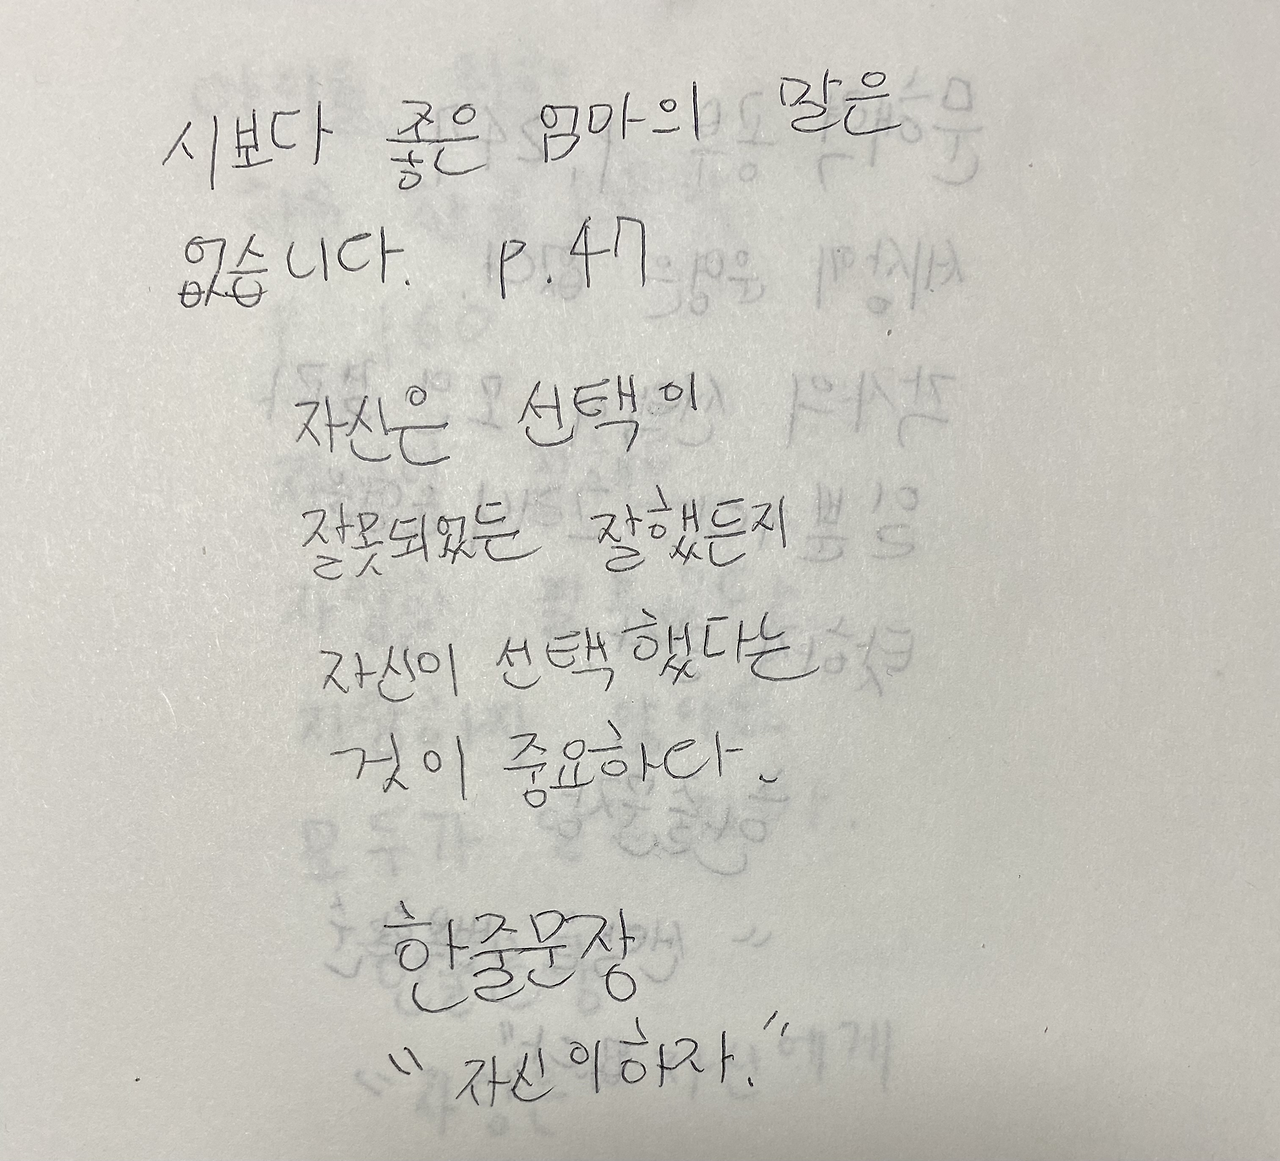 시보다 좋은 엄마의 말은
없습니다. p.47
자신은 선택이
잘못되었든 잘했든지
자신이 선택했다는
것이 중요하다.
한줄문장
"자신이하자."